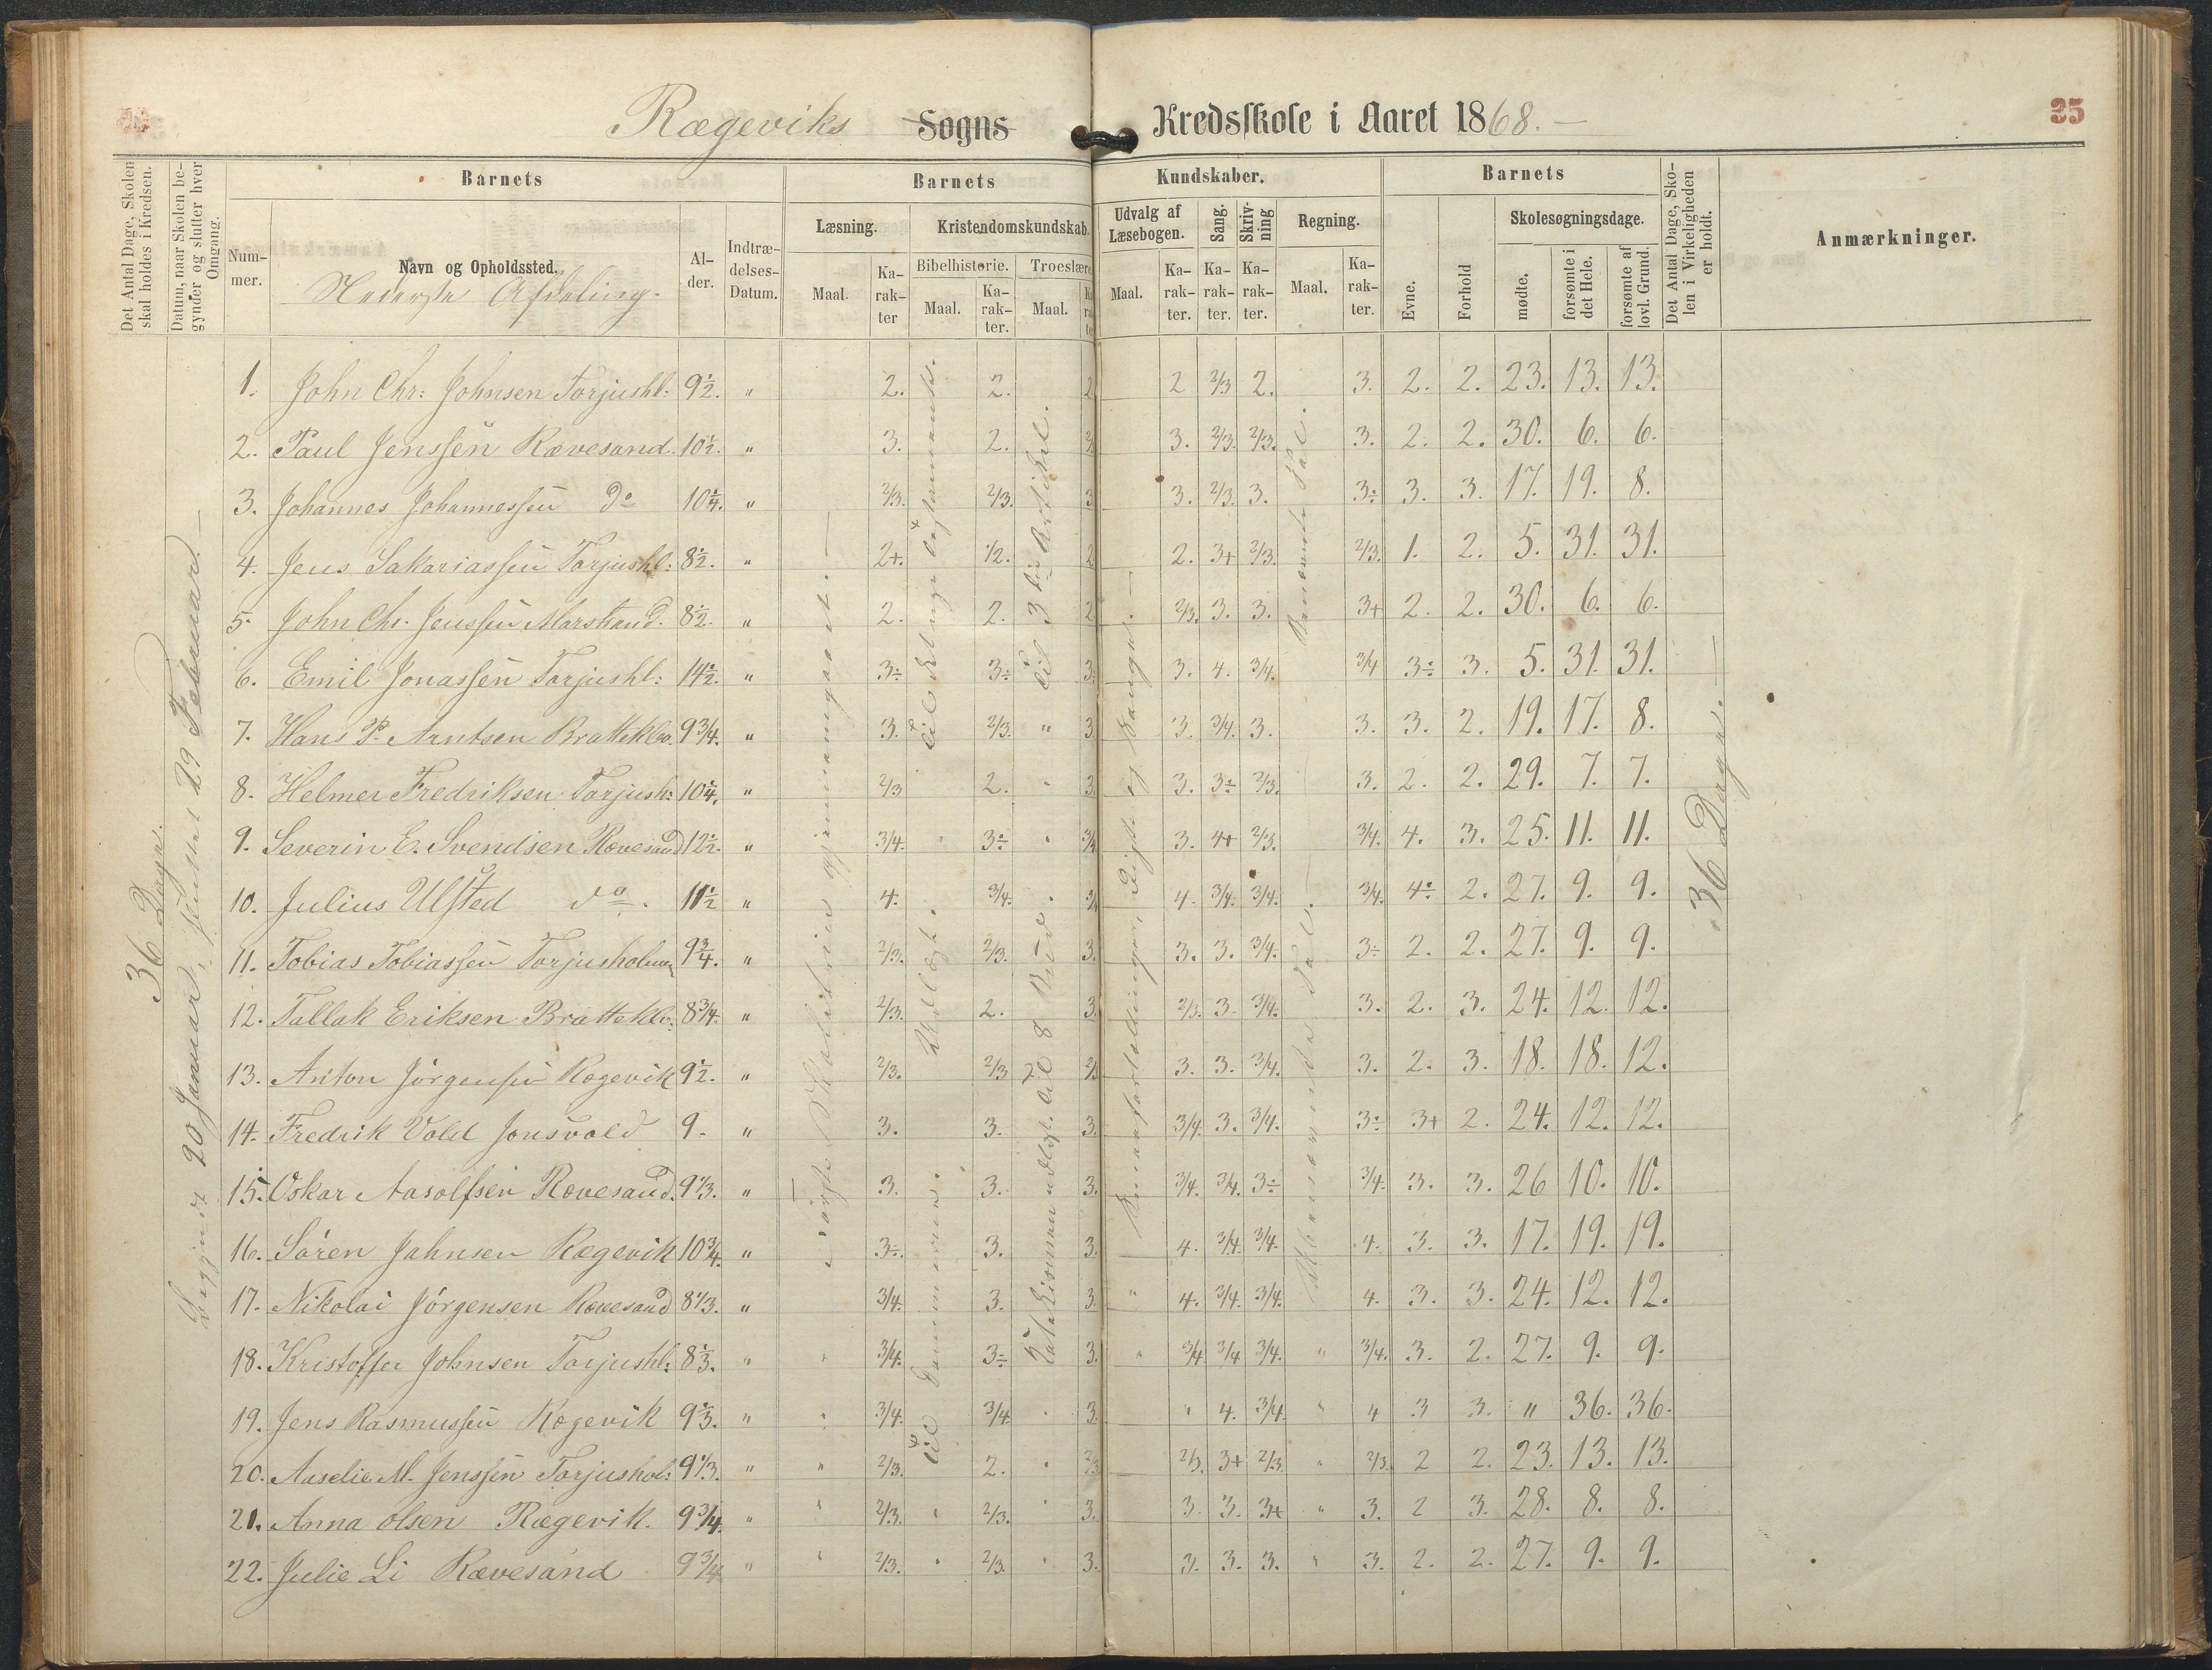 Rægeviks Sogns Kredsskole i Aaret 1868.
35
Det Antal Dage, Skolen skal holdes i Kredsen.
Datum, naar Skolen begynder og slutter hver Omgang.
Barnets
Nummer.
Navn og Opholdssted.
Nederste Afdeling.
Alder.
Indtrædelses-Datum.
Barnets Kundskaber.
Læsning. Kristendomskundskab.
Maal. Karakter
Bibelhistorie. Troeslære
Maal. Karakter. Maal.
Udvalg af Læsebogen. Sang. Skrivning Regning.
Maal. Karakter. Karakter. Karakter. Maal. Karakter.
Barnets
Evne. Forhold
Skolesøgningsdage.
mødte. forsømte i det Hele. forsømte af lovl. Grund.
Det Antal Dage, Skolen i Virkeligheden er holdt.
Anmærkninger.
36 Dage.
Begyndt 20 Januar, sluttet 29 Februar.
36 Dage.
1. John Chr: Johnsen Torjushl: 9½. " 2. 2. 2 2 2/3 2. 3. 2. 2. 23. 13. 13.
2. Paul Jenssen Rævesand. 10½. " 3. 2. 3. 2/3. 2/3. 3. 2. 2. 30. 6. 6.
3. Johannes Johannessen do 10¼. " 2/3. 2/3. 3 3. 2/3. 3. 3÷ 3. 3. 17. 19. 8.
4. Jens Sakariassen Torjushl: 8½. " 2+. 1/2. 2 2. 3+ 2/3. 2/3. 1. 2. 5. 31. 31.
5. John Chr. Jenssen Marstrand. 8½. " 2. 2. 2 2/3. 3. 3. 3+ 2. 2. 30. 6. 6.
6. Emil Jonassen Torjushl: 14½. " 3÷ 3÷ 3. 3. 4. 3/4. 3/4 3÷ 3. 5. 31. 31.
7. Hans P. Arntsen Bratteklev. 9¾. " 3. 2/3. " 3. 3. 3/4. 3. 3. 3. 2. 19. 17. 8.
8. Helmer Fredriksen Torjush: 10¼. " 2/3 2. " 3. 3. 3÷ 2/3. 3. 2. 2. 29. 7. 7.
9. Severin E. Svendsen Rævesand 12½. " 3/4. " 3÷ " 3/4 3. 4+ 2/3. 3/4. 4. 3. 25. 11. 11.
10. Julius Ulsted do. 11½ " 4. 3/4. 4. 3/4. 3/4. 3/4. 4÷ 2. 27. 9. 9.
11. Tobias Tobiassen Torjusholmen 9¾. " 2/3. 2/3. 3. 3. 3. 3/4. 3÷ 2. 2. 27. 9. 9.
12. Tallak Eriksen Bratteklev. 8¾. " 2/3. 2. 3. 2/3. 3. 3/4. 3. 2. 3. 24. 12. 12.
13. Anton Jørgensen Rægevik 9½. " 2/3. 2/3 3. 3. 3/4. 3. 2. 3. 18. 18. 12.
14. Fredrik Vold Jonsvold 9. " 3. 3. 3. 3/4. 3. 3/4. 3÷ 3+ 2. 24. 12. 12.
15. Oskar Aasolfsen Rævesand. 9⅓. " 3. 3. 3. 3/4. 3/4. 3÷ 3/4. 3. 3. 26 10. 10.
16. Søren Jahnsen Rægevik 10¾. " 3÷. 3. 3. 4. 3/4. 3/4. 4. 3. 3. 17. 19. 19.
17. Nikolai Jørgensen Rævesand 8⅓. " 3/4. 3. 3. " 4. 3/4. 3/4. 4. 3. 3. 24. 12. 12.
18. Kristoffer Johnsen Torjushl: 8⅓. " " 3/4. 3÷ 3. " 3/4 3/4 3/4. " 3/4. 3. 2. 27. 9. 9.
19. Jens Rasmussen Rægevik 9⅓. " " 3/4. 3/4. 3. " 4. 3/4. " 4 3 3. " 36. 36.
20. Aaselie M. Jenssen Torjushol: 9⅓. " " 2/3. 2. " 2/3 2/3. 3+ 2/3. " 2/3. 2 2. 23. 13. 13.
21. Anna Olsen Rægevik. 9¾. " " 2/3. " 2/3. " 3. 3. 3. 3+ " 3. 2 3. 28. 8. 8.
22. Julie Li Rævesand 9¾. " " 2/3. " 2/3. " 3. 3. 3. 3. " 3. 2. 2. 27. 9. 9.